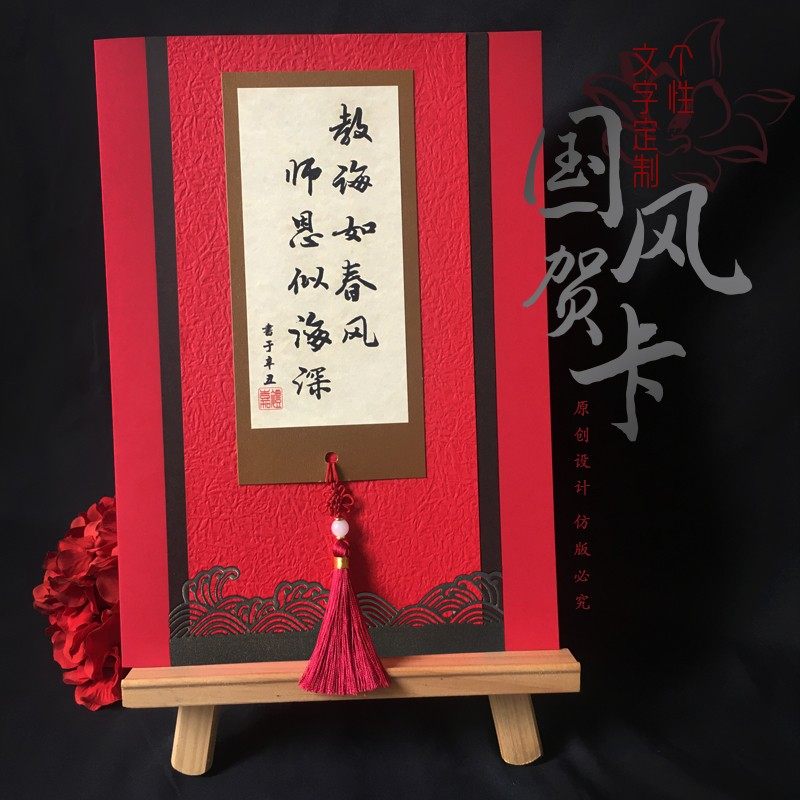 教诲如春风
师恩似海深
书于辛丑
个性
文字定制
国风
贺卡
原创设计 仿版必究